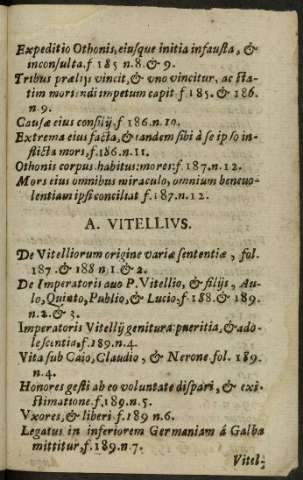 Expeditio Othonis, eiusque initia infausta, &
inconsulta. f. 185 n. 8. & 9.
Tribus prælijs vincit, & vno vincitur, ac sta-
tim moriendi impetum capit. f 185. & 186.
n. 9.
Causæ eius consilij. f 186. n. 10.
Extrema eius facta, & tandem sibi à se ipso in-
flicta mors, f. 186. n. 11.
Othonis corpus. habitus: mores: f. 187. n. 12.
Mors eius omnibus miraculo, omnium beneuo-
lentiam ipsi conciliat f. 187. n. 12.
A. VITELLIVS.
De Vitelliorum origine variæ sententiæ, fol.
187. & 188 n. 1. & 2.
De Imperatoris auo P. Vitellio, & filijs, Au-
lo, Quinto, Publio, & Lucio, f 188. & 189.
n. 2. & 3.
Imperatoris Vitellij genitura: pueritia, & ado-
lescentia, f. 189. n. 4.
Vita sub Caio, Claudio, & Nerone fol. 189.
n. 4.
Honores gesti ab eo voluntate dispari, & exi-
stimatione. f. 189. n. 5.
Vxores, & liberi f. 189 n. 6.
Legatus in inferiorem Germaniam á Galba
mittitur, f. 189. n. 7.
Vitel-